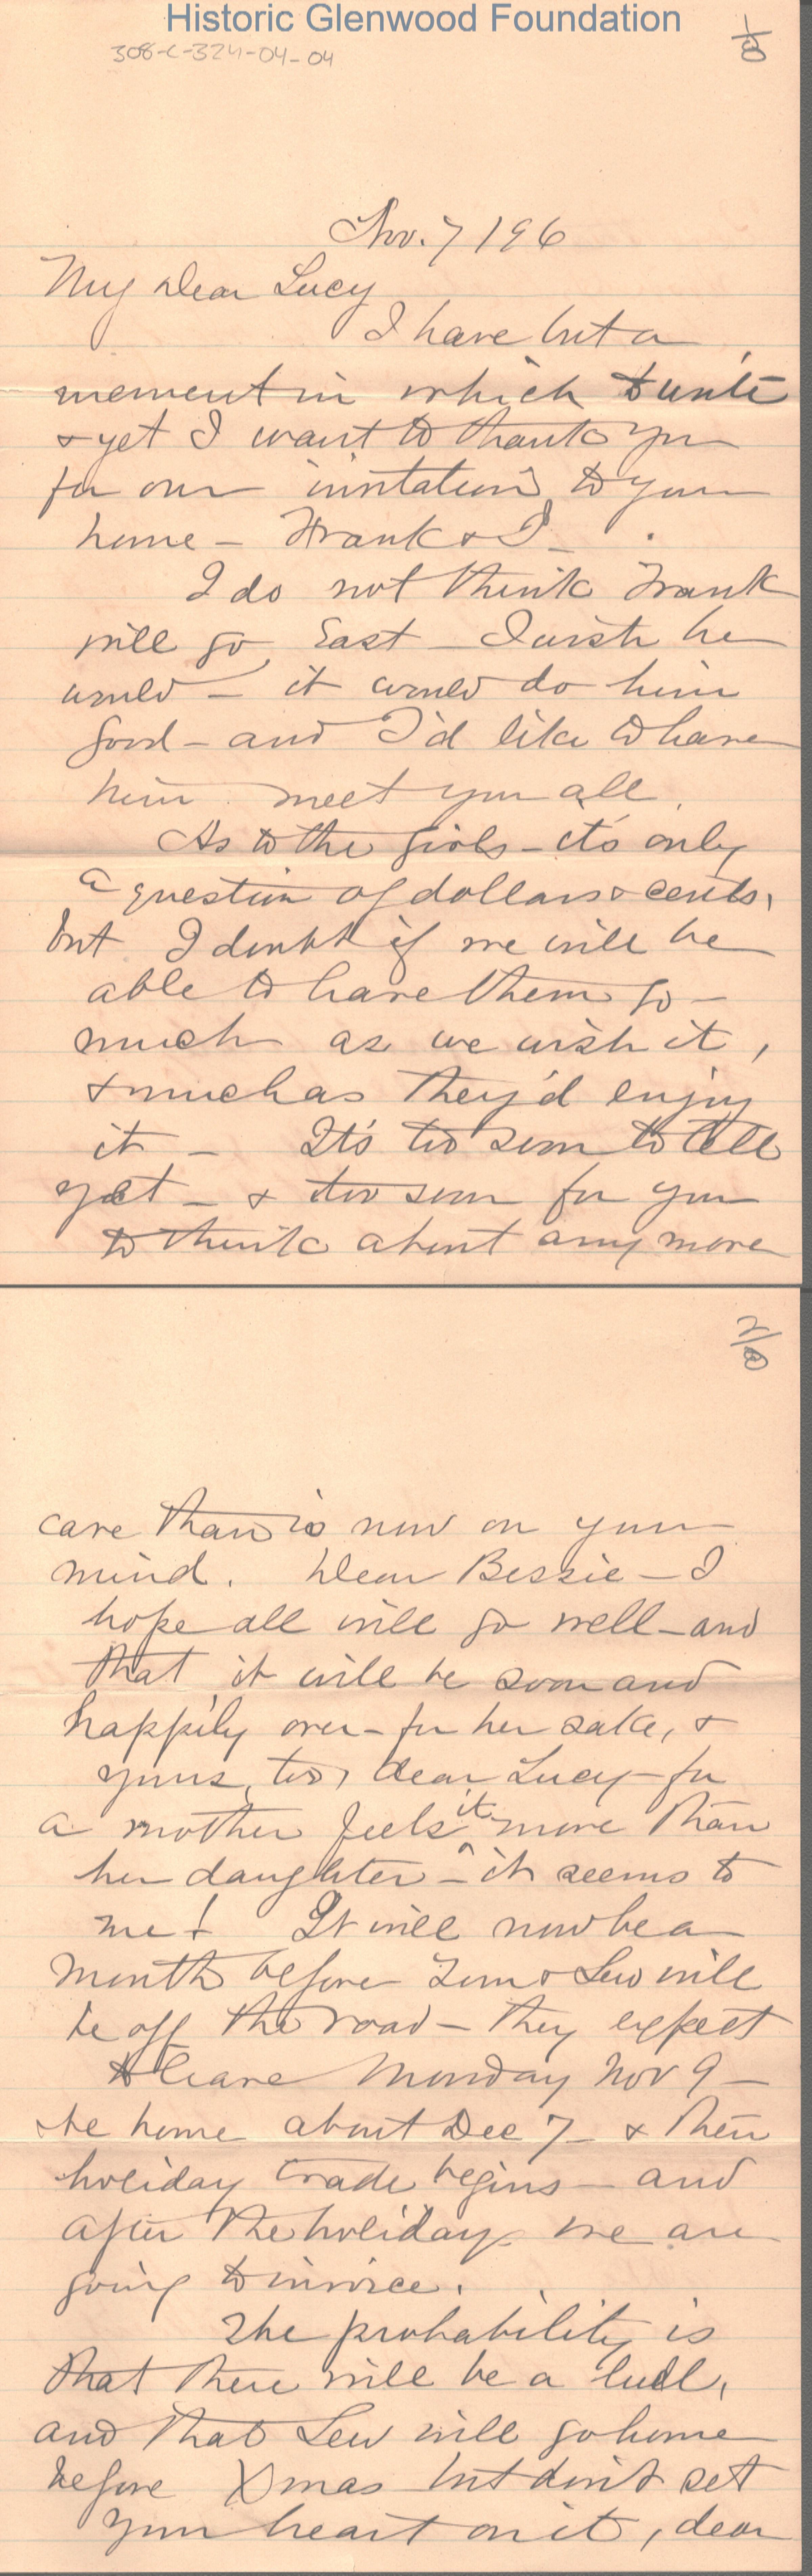 Historic Glenwood Foundation
308-C-324-04-04
1/8
Nov. 7 196
My Dear Lucy
I have but a
moment in which to write
& yet I want to thank you
for our invitation to your
home - Frank & I -
I do not think Frank
will go East - I wish he
would - it would do him
good - and I'd like to have
him meet you all.
As to the girls - it's only
a question of dollars & cents,
but I doubt if we will be
able to have them go -
much as we wish it,
& much as they'd enjoy
it - It's too soon to tell
yet - & too soon for you
to think about any more
2/8
care than is now on your
mind. Dear Bessie - I
hope all will go well - and
that it will be soon and
happily over - for her sake, &
yours, too, dear Lucy - for
a mother feels it more than
her daughter - it seems to
me! It will now be a
month before & Lew will
be off the road - they expect
to leave Monday Nov 9 -
be home about Dec 7 - & then
holiday trade begins - and
after the holidays we are
going to invoice.
The probability is
that there will be a lull,
and that Lew will go home
before Xmas but don't set
your heart on it, dear